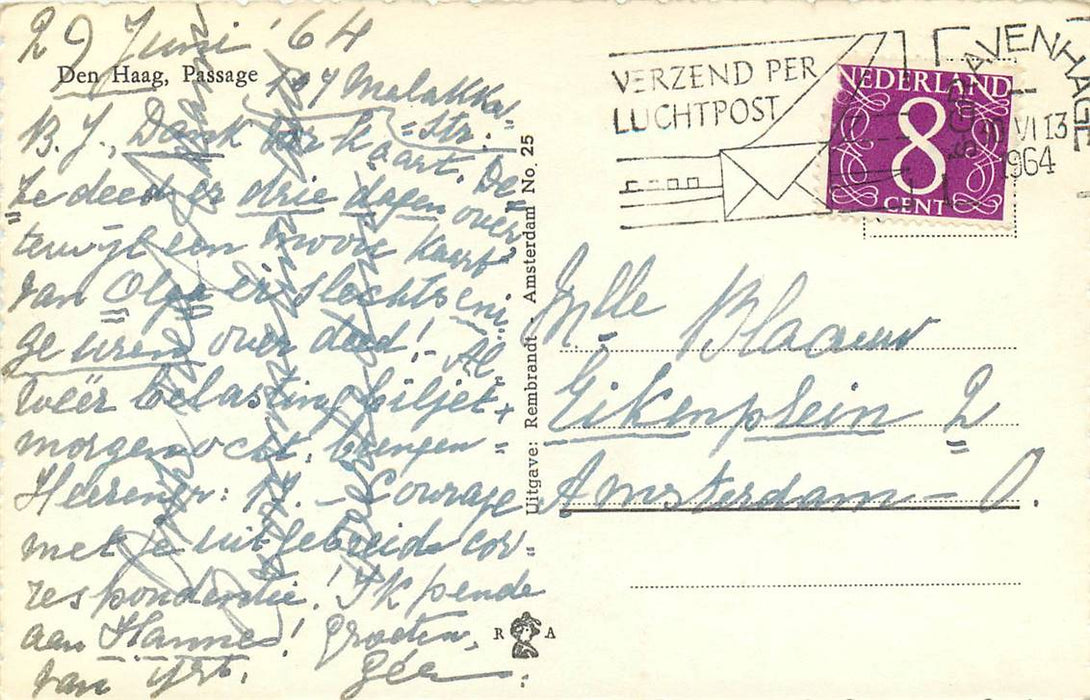 29 Juni '64
Den Haag, Passage
107 Malakka-
str.
B. J., Dank voor k
aart. De
ze deed er drie dagen over
terwijl een mooie kaart
van Olga er slechts eni
ge uren over deed! - Al
weer belasting biljet +
morgenocht. brengen
Heerengr: 17. - Courage
met je uitgebreide cor
respondentie! Ik pende
aan Hanne! Groeten,
van yrt. Gée
Uitgave: Rembrandt - Amsterdam No. 25
R A
VERZEND PER
LUCHTPOST
'S GRAVENHAGE
VI 13
1964
NEDERLAND
8
CENT
Mlle Blaauw
Eikenplein 2
Amsterdam - O.